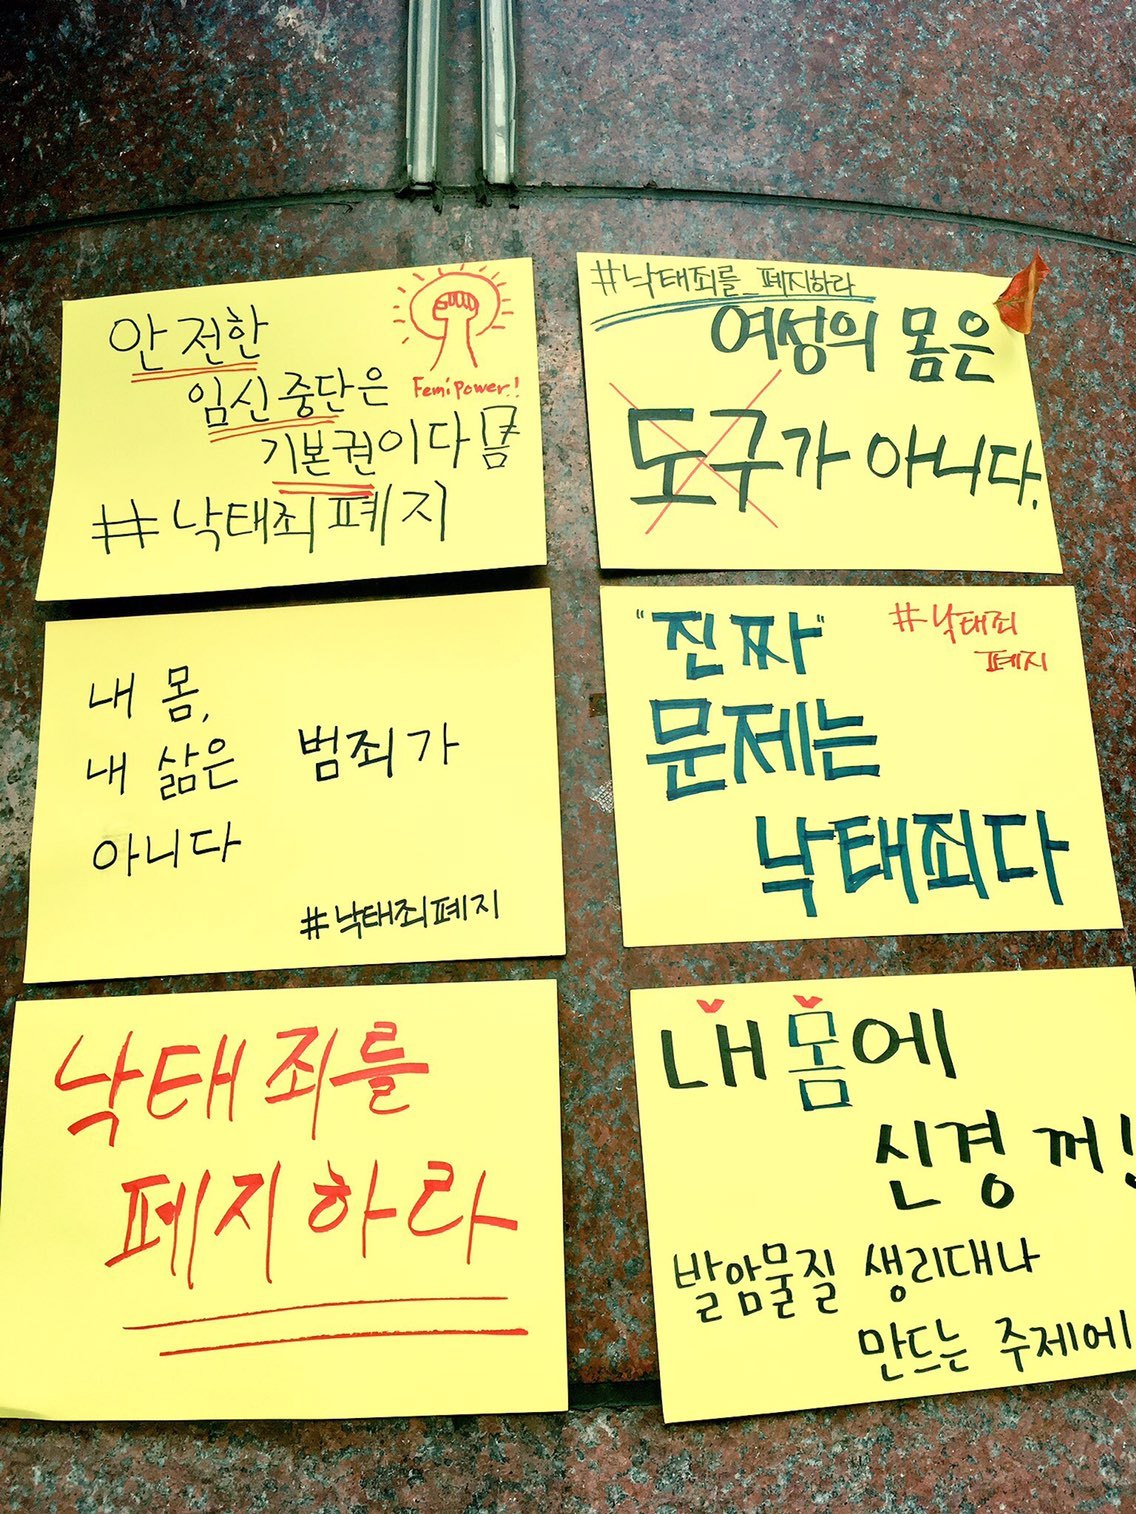 안전한
임신중단은
Femi power!
기본권이다
#낙태죄폐지
#낙태죄를_폐지하라
여성의 몸은
도구가 아니다.
내 몸,
내 삶은 범죄가
아니다
#낙태죄폐지
"진짜"
문제는
낙태죄다
#낙태죄
폐지
낙태죄를
폐지하라
내 몸에
신경 꺼!
발암물질 생리대나
만드는 주제에